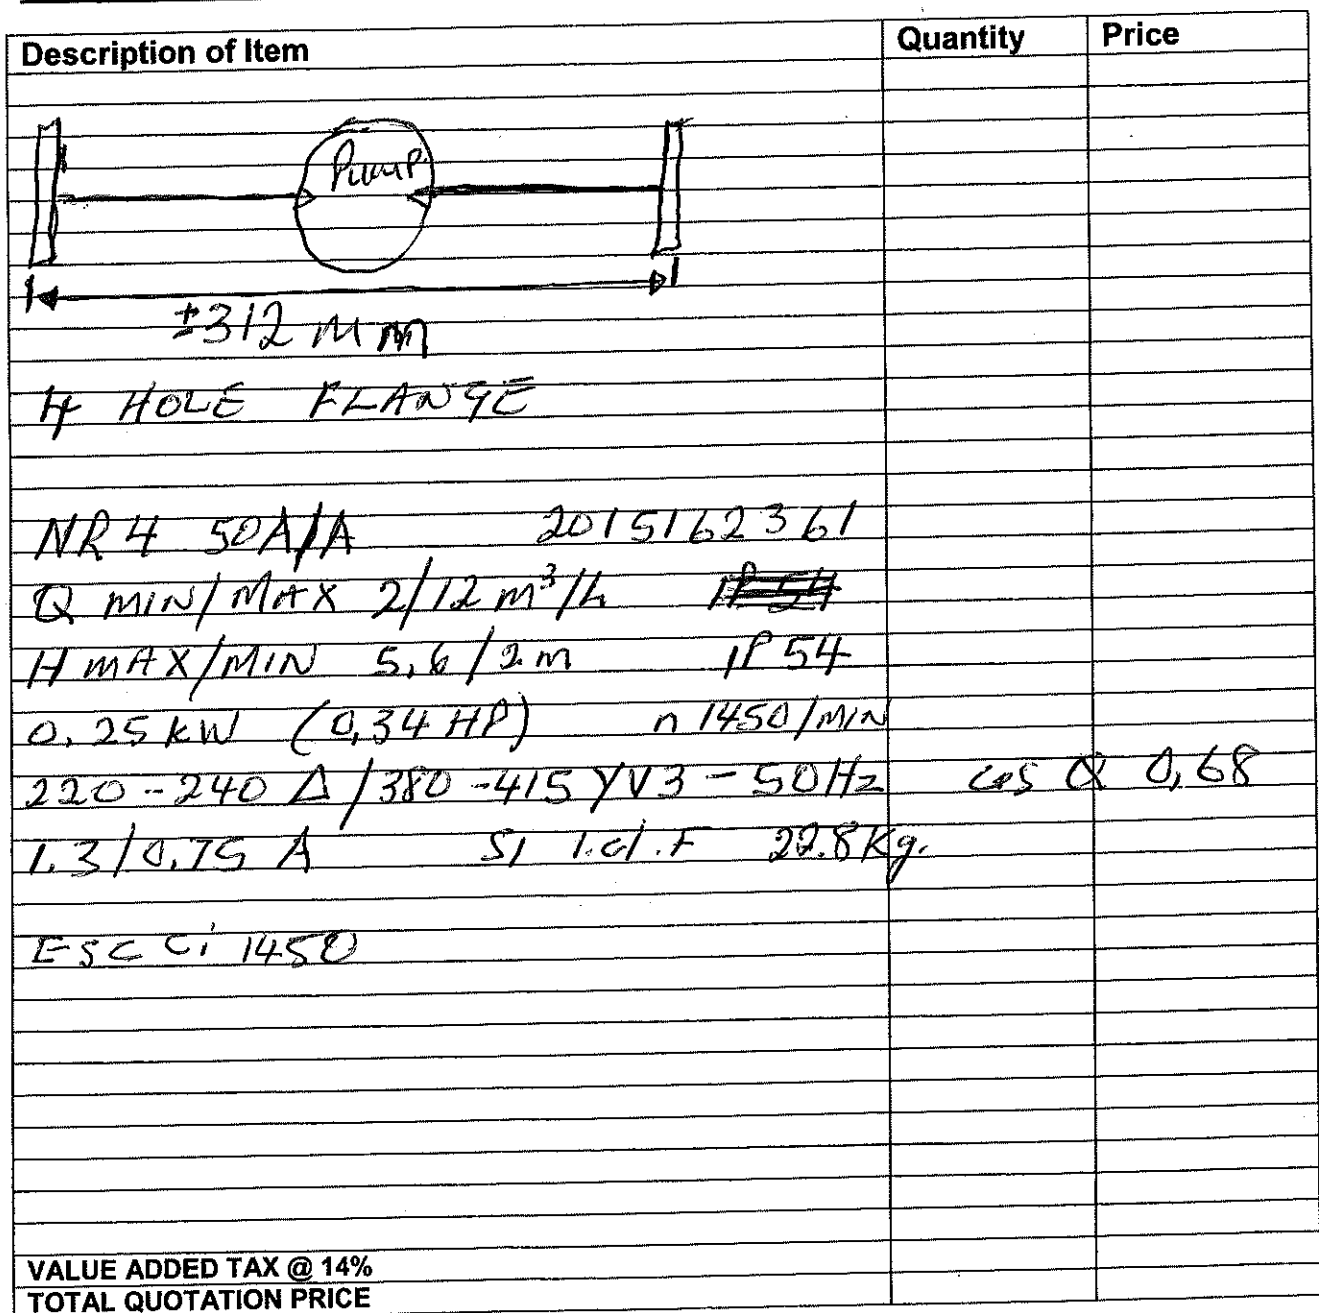 Description of Item Quantity Price
Pump
±312 mm
4 HOLE FLANGE
NR4 50A/A 2015162361
Q MIN/MAX 2/12 m³/h IP 54
H MAX/MIN 5,6/2m IP 54
0.25 kW (0,34 HP) n 1450/MIN
220-240 Δ/380-415 YV3-50Hz cos Q 0,68
1.3/0.75 A S1 I.cl.F 22.8Kg.
Esc Ci 1450
VALUE ADDED TAX @ 14%
TOTAL QUOTATION PRICE